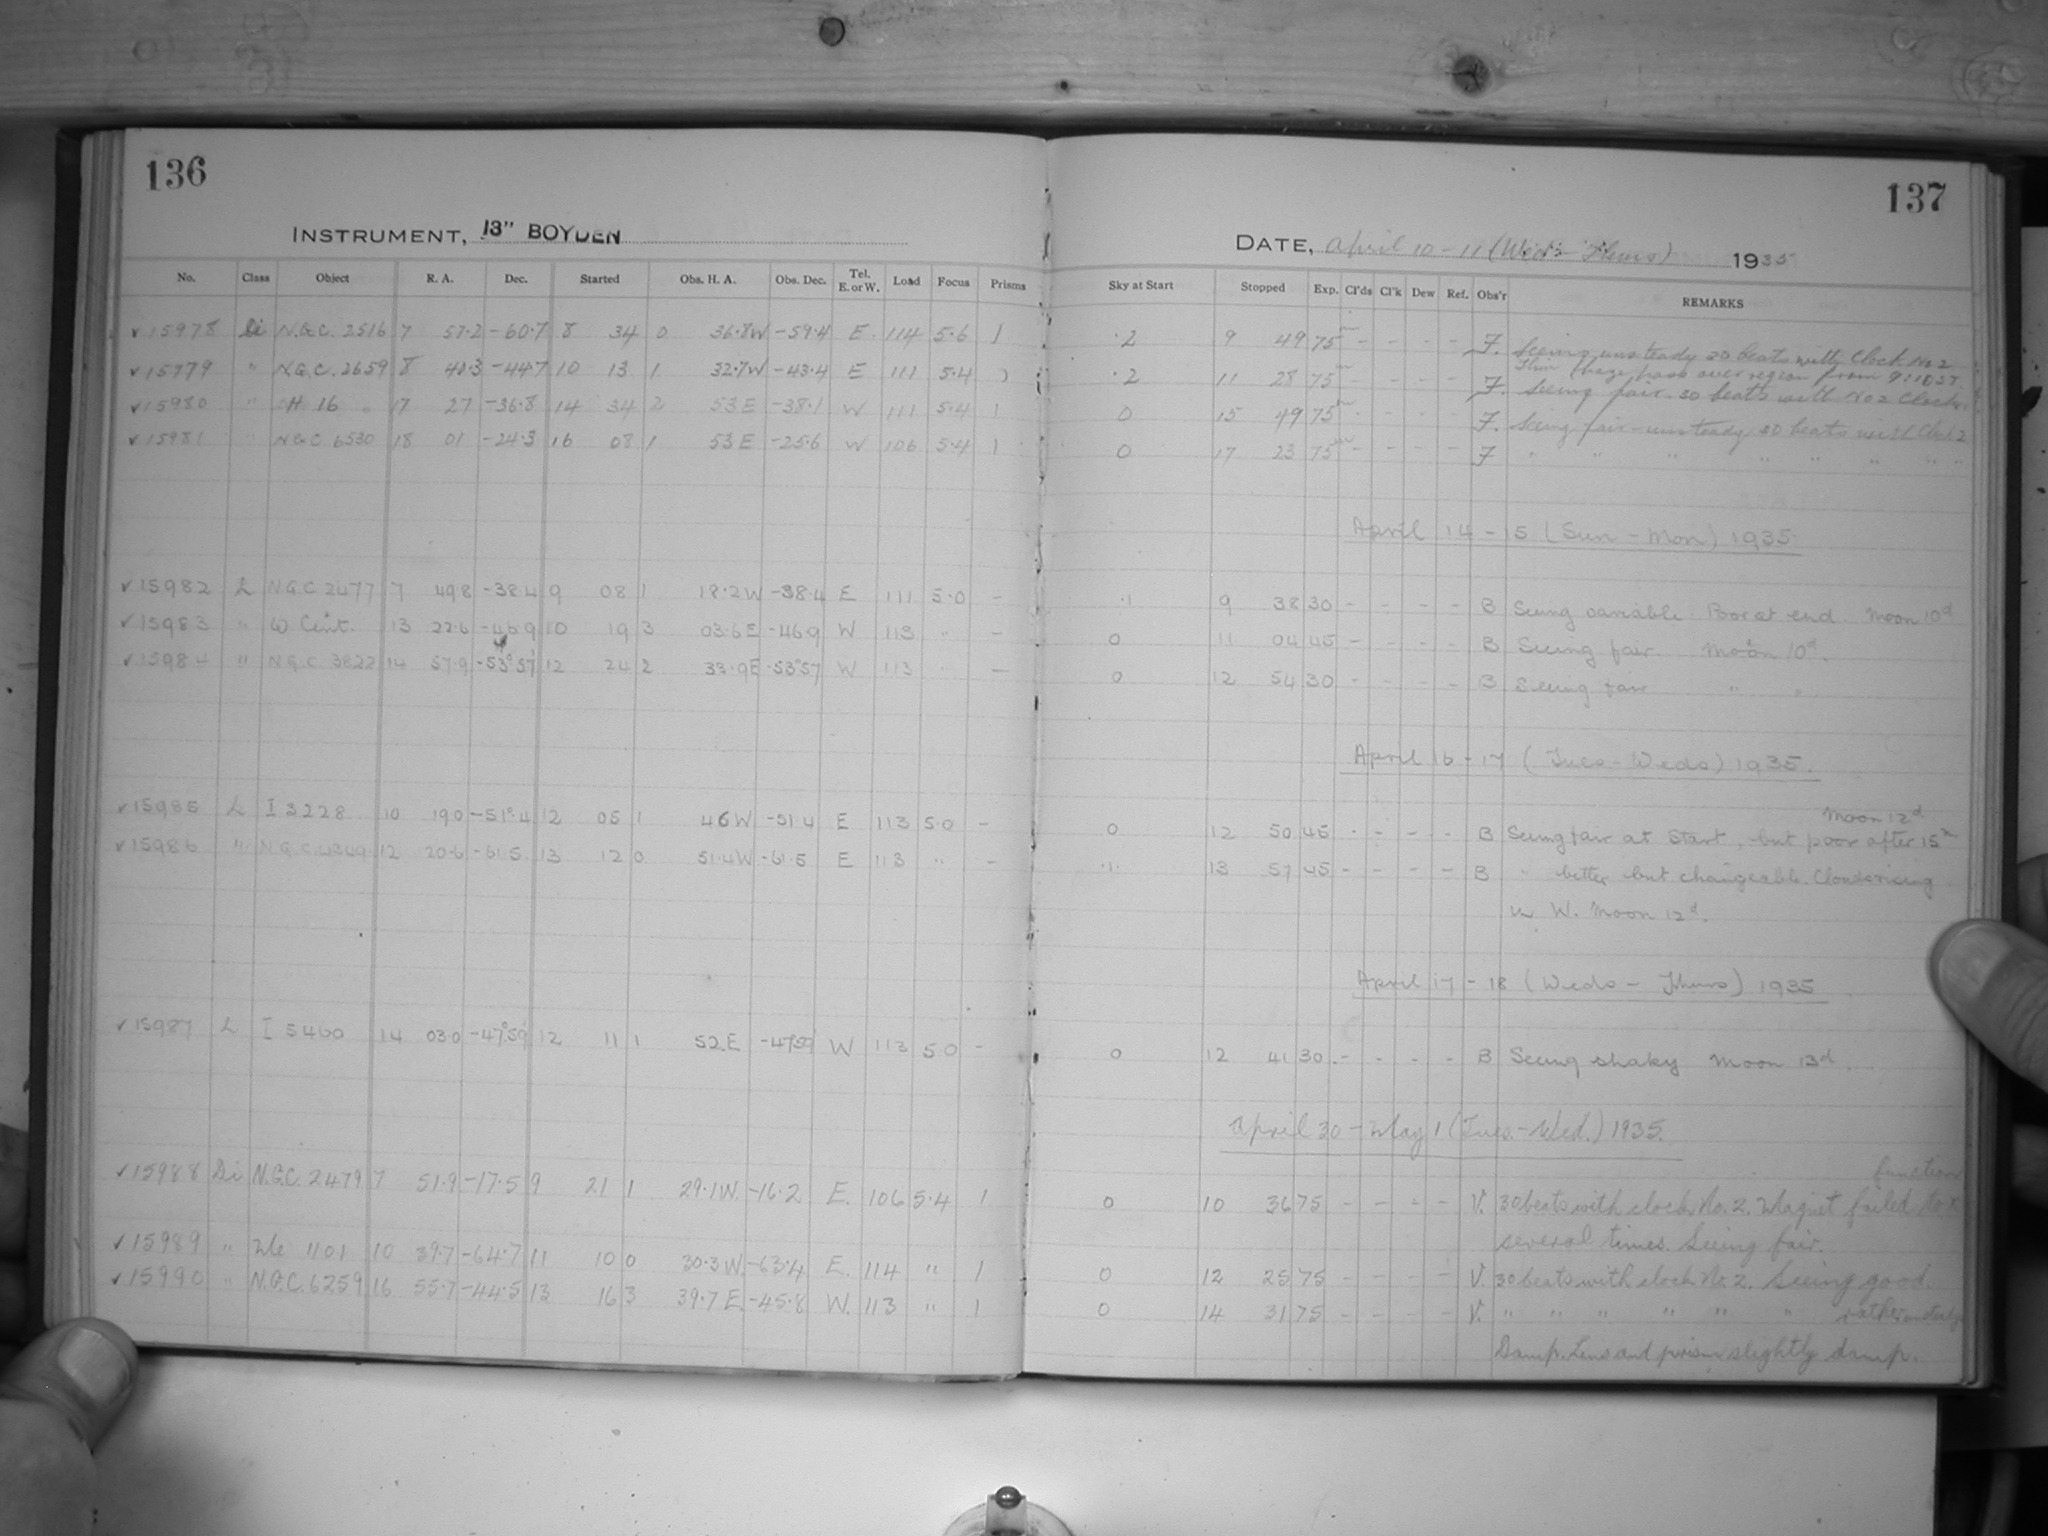 136
INSTRUMENT, 13" BOYDEN
No. Class Object R. A. Dec. Started Obs. H. A. Obs. Dec. Tel. E. or W. Load Focus Prisms
✓15978 Di N.G.C. 2516 7 57.2 -60.7 8 34 0 36.8W -59.4 E. 114 5.6 1
✓15979 " N.G.C. 2659 8 -44.7 10 13 1 32.7W -43.4 E 111 5.4
✓15980 " H 16 17 27 -36.8 14 34 2 53 E -38.1 W 111 5.4 1
✓15981 " N.G.C. 6530 18 01 -24.3 16 08 1 53 E -25.6 W 106 5.4 1
✓15982 L N.G.C. 2477 7 49.8 -38.4 9 08 1 18.2W -38.4 E 111 5.0 -
✓15983 " ω Cent. 13 22.6 -46.9 10 19 3 03.6E -46.9 W 113 " -
✓15984 " N.G.C. 3822 14 57.9 -53°57' 12 24 2 33.9E -53°57 W 113 " -
✓15985 L I 3228 10 19.0 -51°.4 12 05 1 46 W -51.4 E 113 5.0 -
✓15986 " N.G.C. 4349 12 20.6 -61.5 13 12 0 51.4W -61.5 E 113 " -
✓15987 L I 5460 14 03.0 -47°59' 12 11 1 52 E -47°59 W 113 5.0 -
✓15988 Di N.G.C. 2479 7 51.9 -17.5 9 21 1 29.1W. -16.2 E. 106 5.4 1
✓15989 " Me 1101 10 39.7 -64.7 11 10 0 30.3W. -63.4 E. 114 " 1
✓15990 " N.G.C. 6259 16 55.7 -44.5 13 16 3 39.7 E. -45.8 W. 113 " 1
137
DATE, April 10-11 (Weds-Thurs) 1935
Sky at Start Stopped Exp. Cl'ds Cl'k Dew Ref. Obs'r REMARKS
.2 9 49 75m - - - - F. Seeing unsteady 30 beats with Clock No 2
Thin haze pass over region from 9:10 ST.
.2 11 28 75m - - - - F. Seeing fair. 30 beats with No 2 Clock.
0 15 49 75m - - - - F. Seeing fair-unsteady 30 beats with Clock 2
0 17 23 75m - - - - F " " " " " " " "
April 14-15 (Sun-Mon) 1935
.1 9 38 30 - - - - B Seeing variable. Poor at end. Moon 10d
0 11 04 45 - - - - B Seeing fair. Moon 10d.
0 12 54 30 - - - - B Seeing fair " "
April 16-17 (Tues-Weds) 1935.
Moon 12d
0 12 50 45 - - - - B Seeing fair at start, but poor after 15m
.1 13 57 45 - - - - B " better but changeable. Clouds rising
in W. Moon 12d.
April 17-18 (Weds-Thurs) 1935
0 12 41 30 - - - - B Seeing shaky Moon 13d.
April 30-May 1 (Tues.-Wed.) 1935.
function
0 10 36 75 - - - - V. 30 beats with clock No. 2. Magnet failed to
several times. Seeing fair.
0 12 25 75 - - - - V. 30 beats with clock No. 2. Seeing good.
0 14 31 75 - - - - V. " " " " " " rather unsteady
Damp. Lens and prism slightly damp.